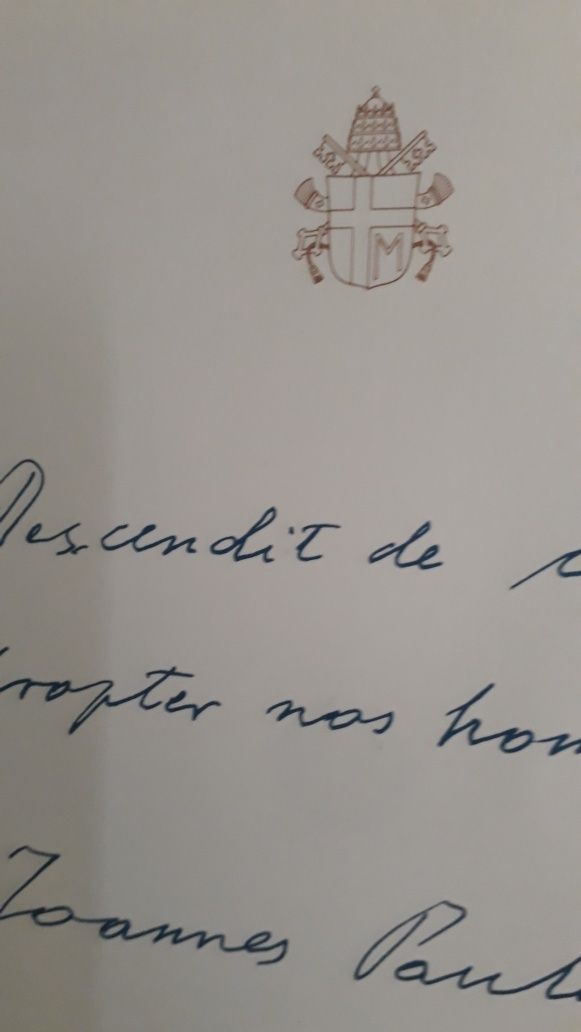 M
Descendit de c
propter nos hom
Joannes Paulu